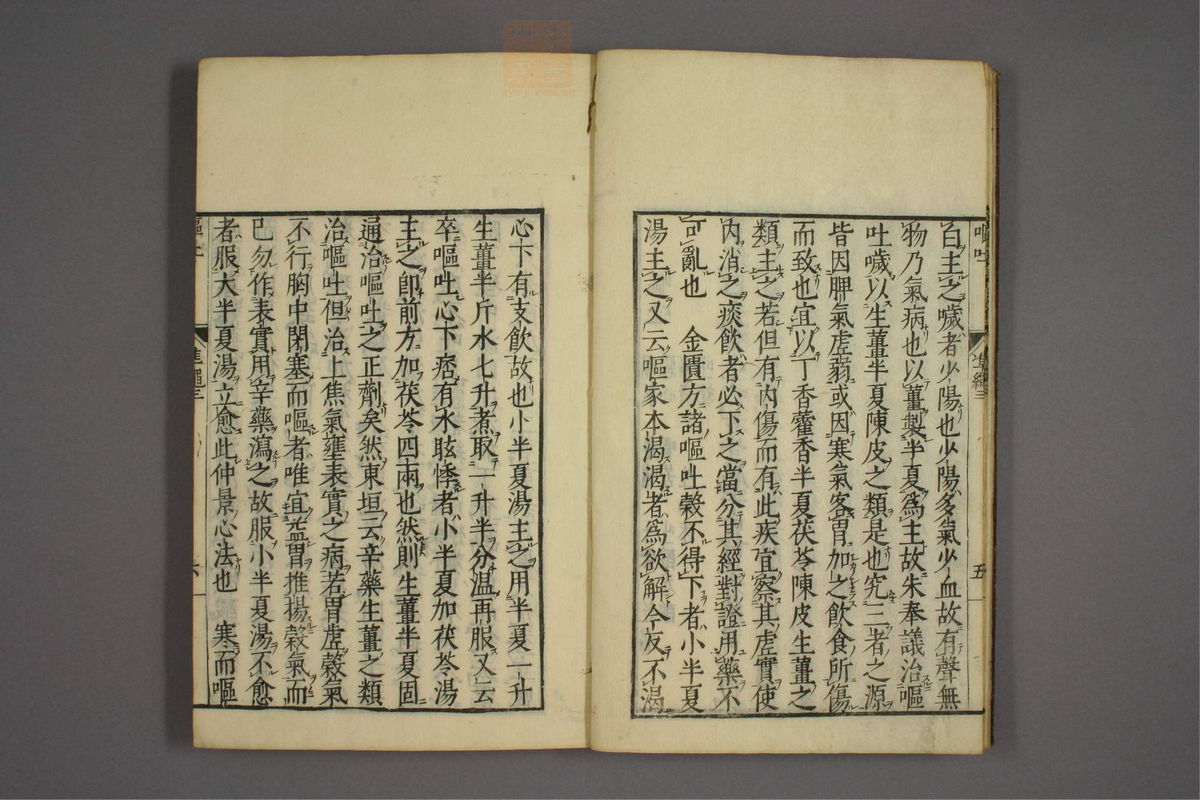 百主之噦者少陽也少陽多氣少血故有聲無
物乃氣病也以薑製半夏爲主故朱奉議治嘔
吐噦以生薑半夏陳皮之類是也究三者之源
皆因脾氣虛弱或因寒氣客胃加之飲食所傷
而致也宜以丁香藿香半夏茯苓陳皮生薑之
類主之若但有內傷而有此疾宜察其虛實使
內消之痰飲者必下之當分其經對證用藥不
可亂也　金匱方諸嘔吐穀不得下者小半夏
湯主之又云嘔家本渴渴者爲欲解今反不渴
嘔吐
準繩三
五
心下有支飲故也小半夏湯主之用半夏一升
生薑半斤水七升煮取一升半分溫再服又云
卒嘔吐心下痞有水眩悸者小半夏加茯苓湯
主之卽前方加茯苓四兩也然則生薑半夏固
通治嘔吐之正劑矣然東垣云辛藥生薑之類
治嘔吐但治上焦氣壅表實之病若胃虛穀氣
不行胸中閉塞而嘔者唯宜益胃推揚穀氣而
已勿作表實用辛藥瀉之故服小半夏湯不愈
者服大半夏湯立愈此仲景心法也　寒而嘔
嘔吐
準繩三
六